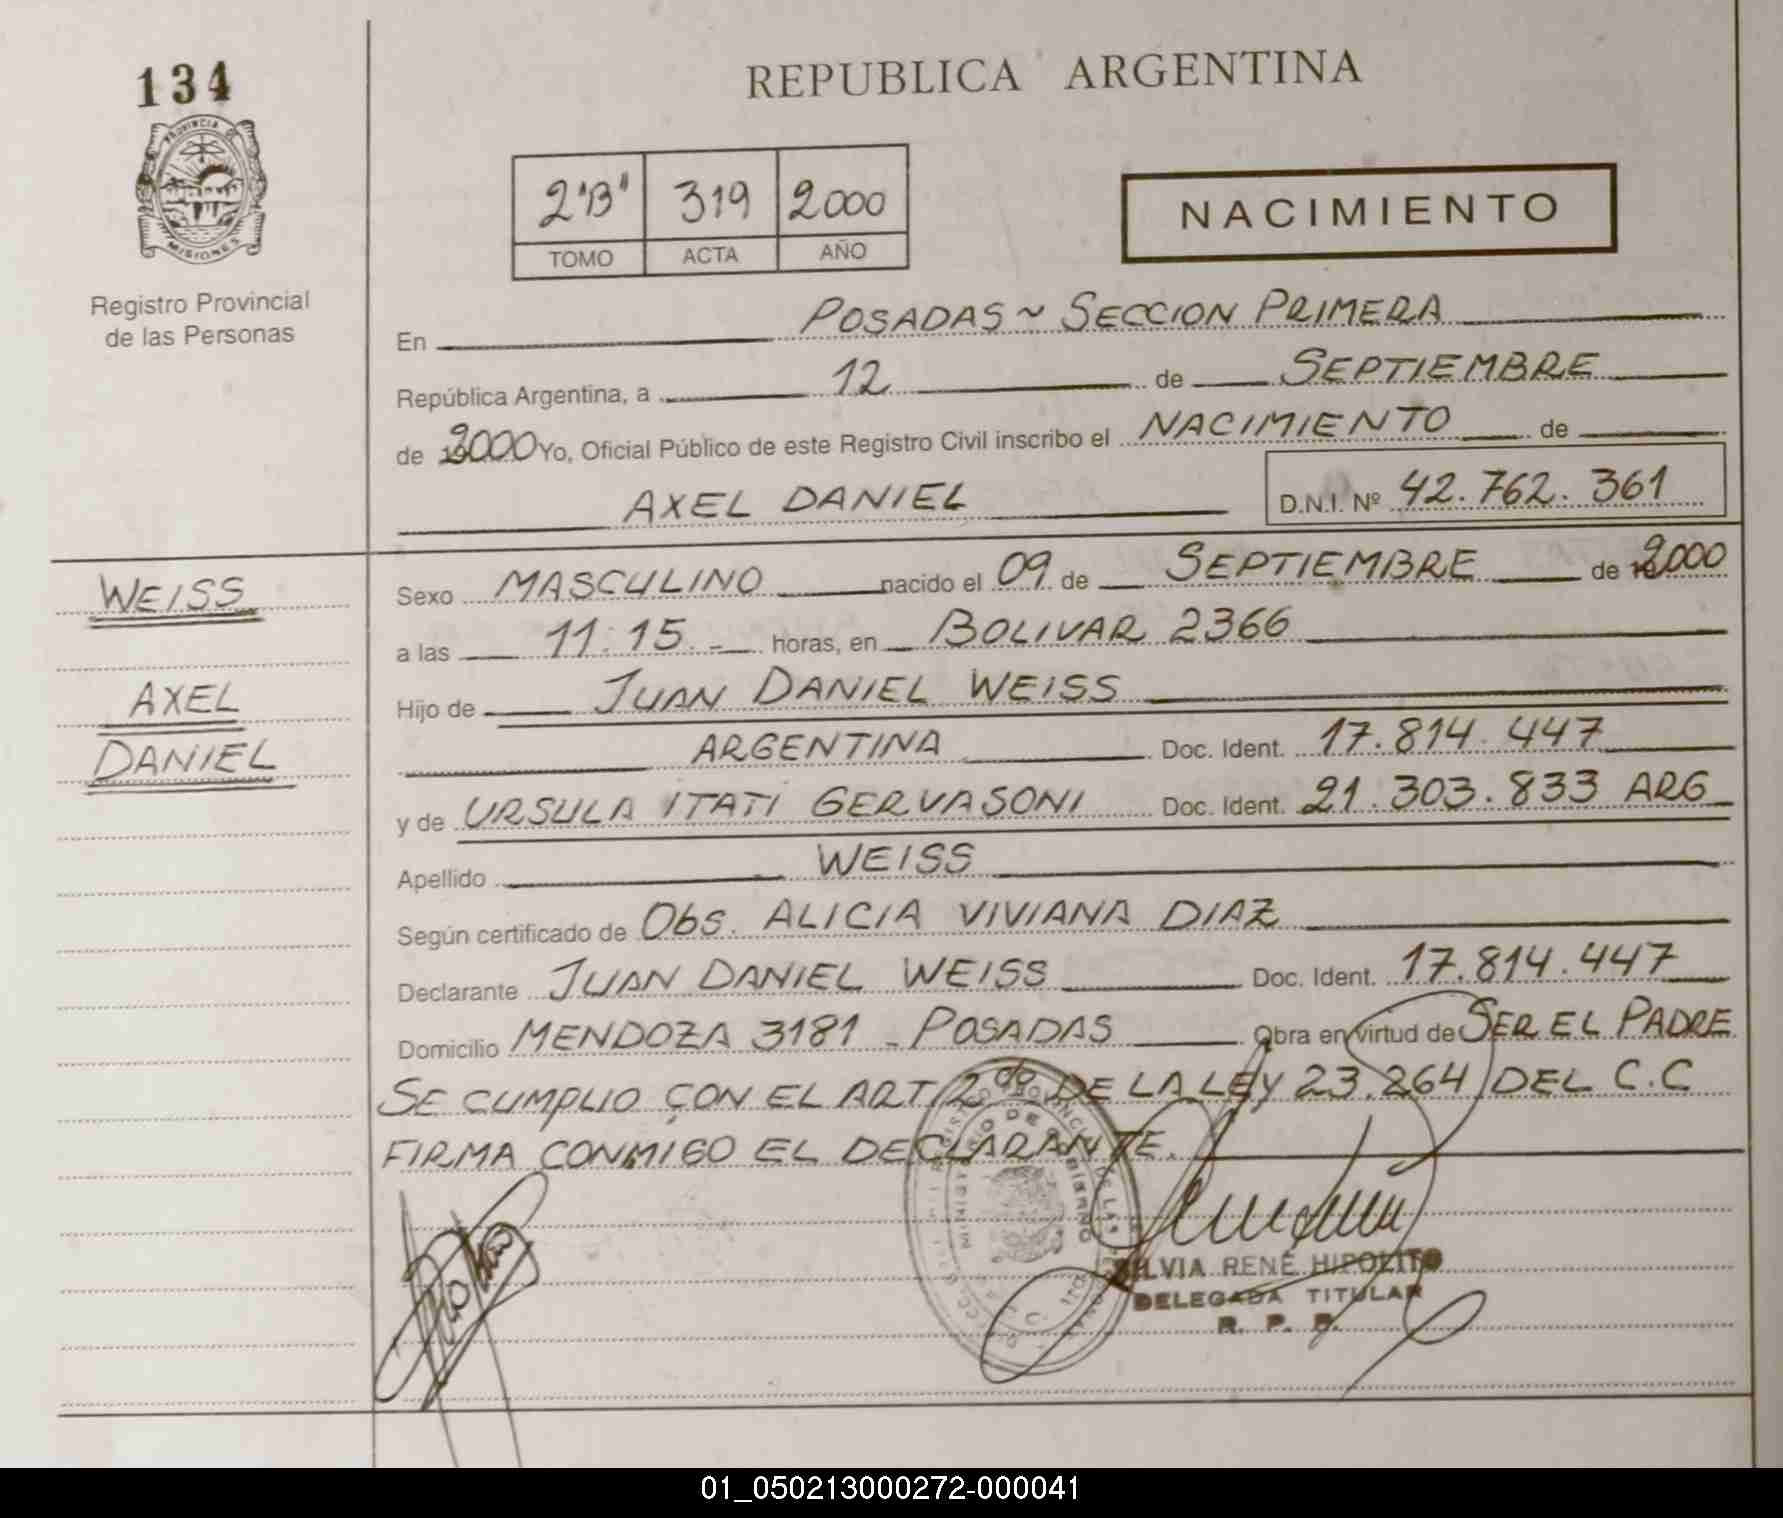 134
PROVINCIA DE
MISIONES
Registro Provincial
de las Personas
REPUBLICA ARGENTINA
2"B" 319 2000
TOMO ACTA AÑO
NACIMIENTO
En POSADAS ~ SECCION PRIMERA
República Argentina, a 12 de SEPTIEMBRE
de 2000 Yo, Oficial Público de este Registro Civil inscribo el NACIMIENTO de
AXEL DANIEL D.N.I. Nº 42.762.361
WEISS
AXEL
DANIEL
Sexo MASCULINO nacido el 09 de SEPTIEMBRE de 2000
a las 11:15 horas, en BOLIVAR 2366
Hijo de JUAN DANIEL WEISS
ARGENTINA Doc. Ident. 17.814.447
y de URSULA ITATI GERVASONI Doc. Ident. 21.303.833 ARG
Apellido WEISS
Según certificado de Obs. ALICIA VIVIANA DIAZ
Declarante JUAN DANIEL WEISS Doc. Ident. 17.814.447
Domicilio MENDOZA 3181 - POSADAS Obra en virtud de SER EL PADRE
SE CUMPLIO CON EL ART 2do DE LA LEY 23.264 DEL C.C
FIRMA CONMIGO EL DECLARANTE.
MINISTERIO DE GOBIERNO
SILVIA RENÉ HIPOLITO
DELEGADA TITULAR
R. P. P.
01_050213000272-000041